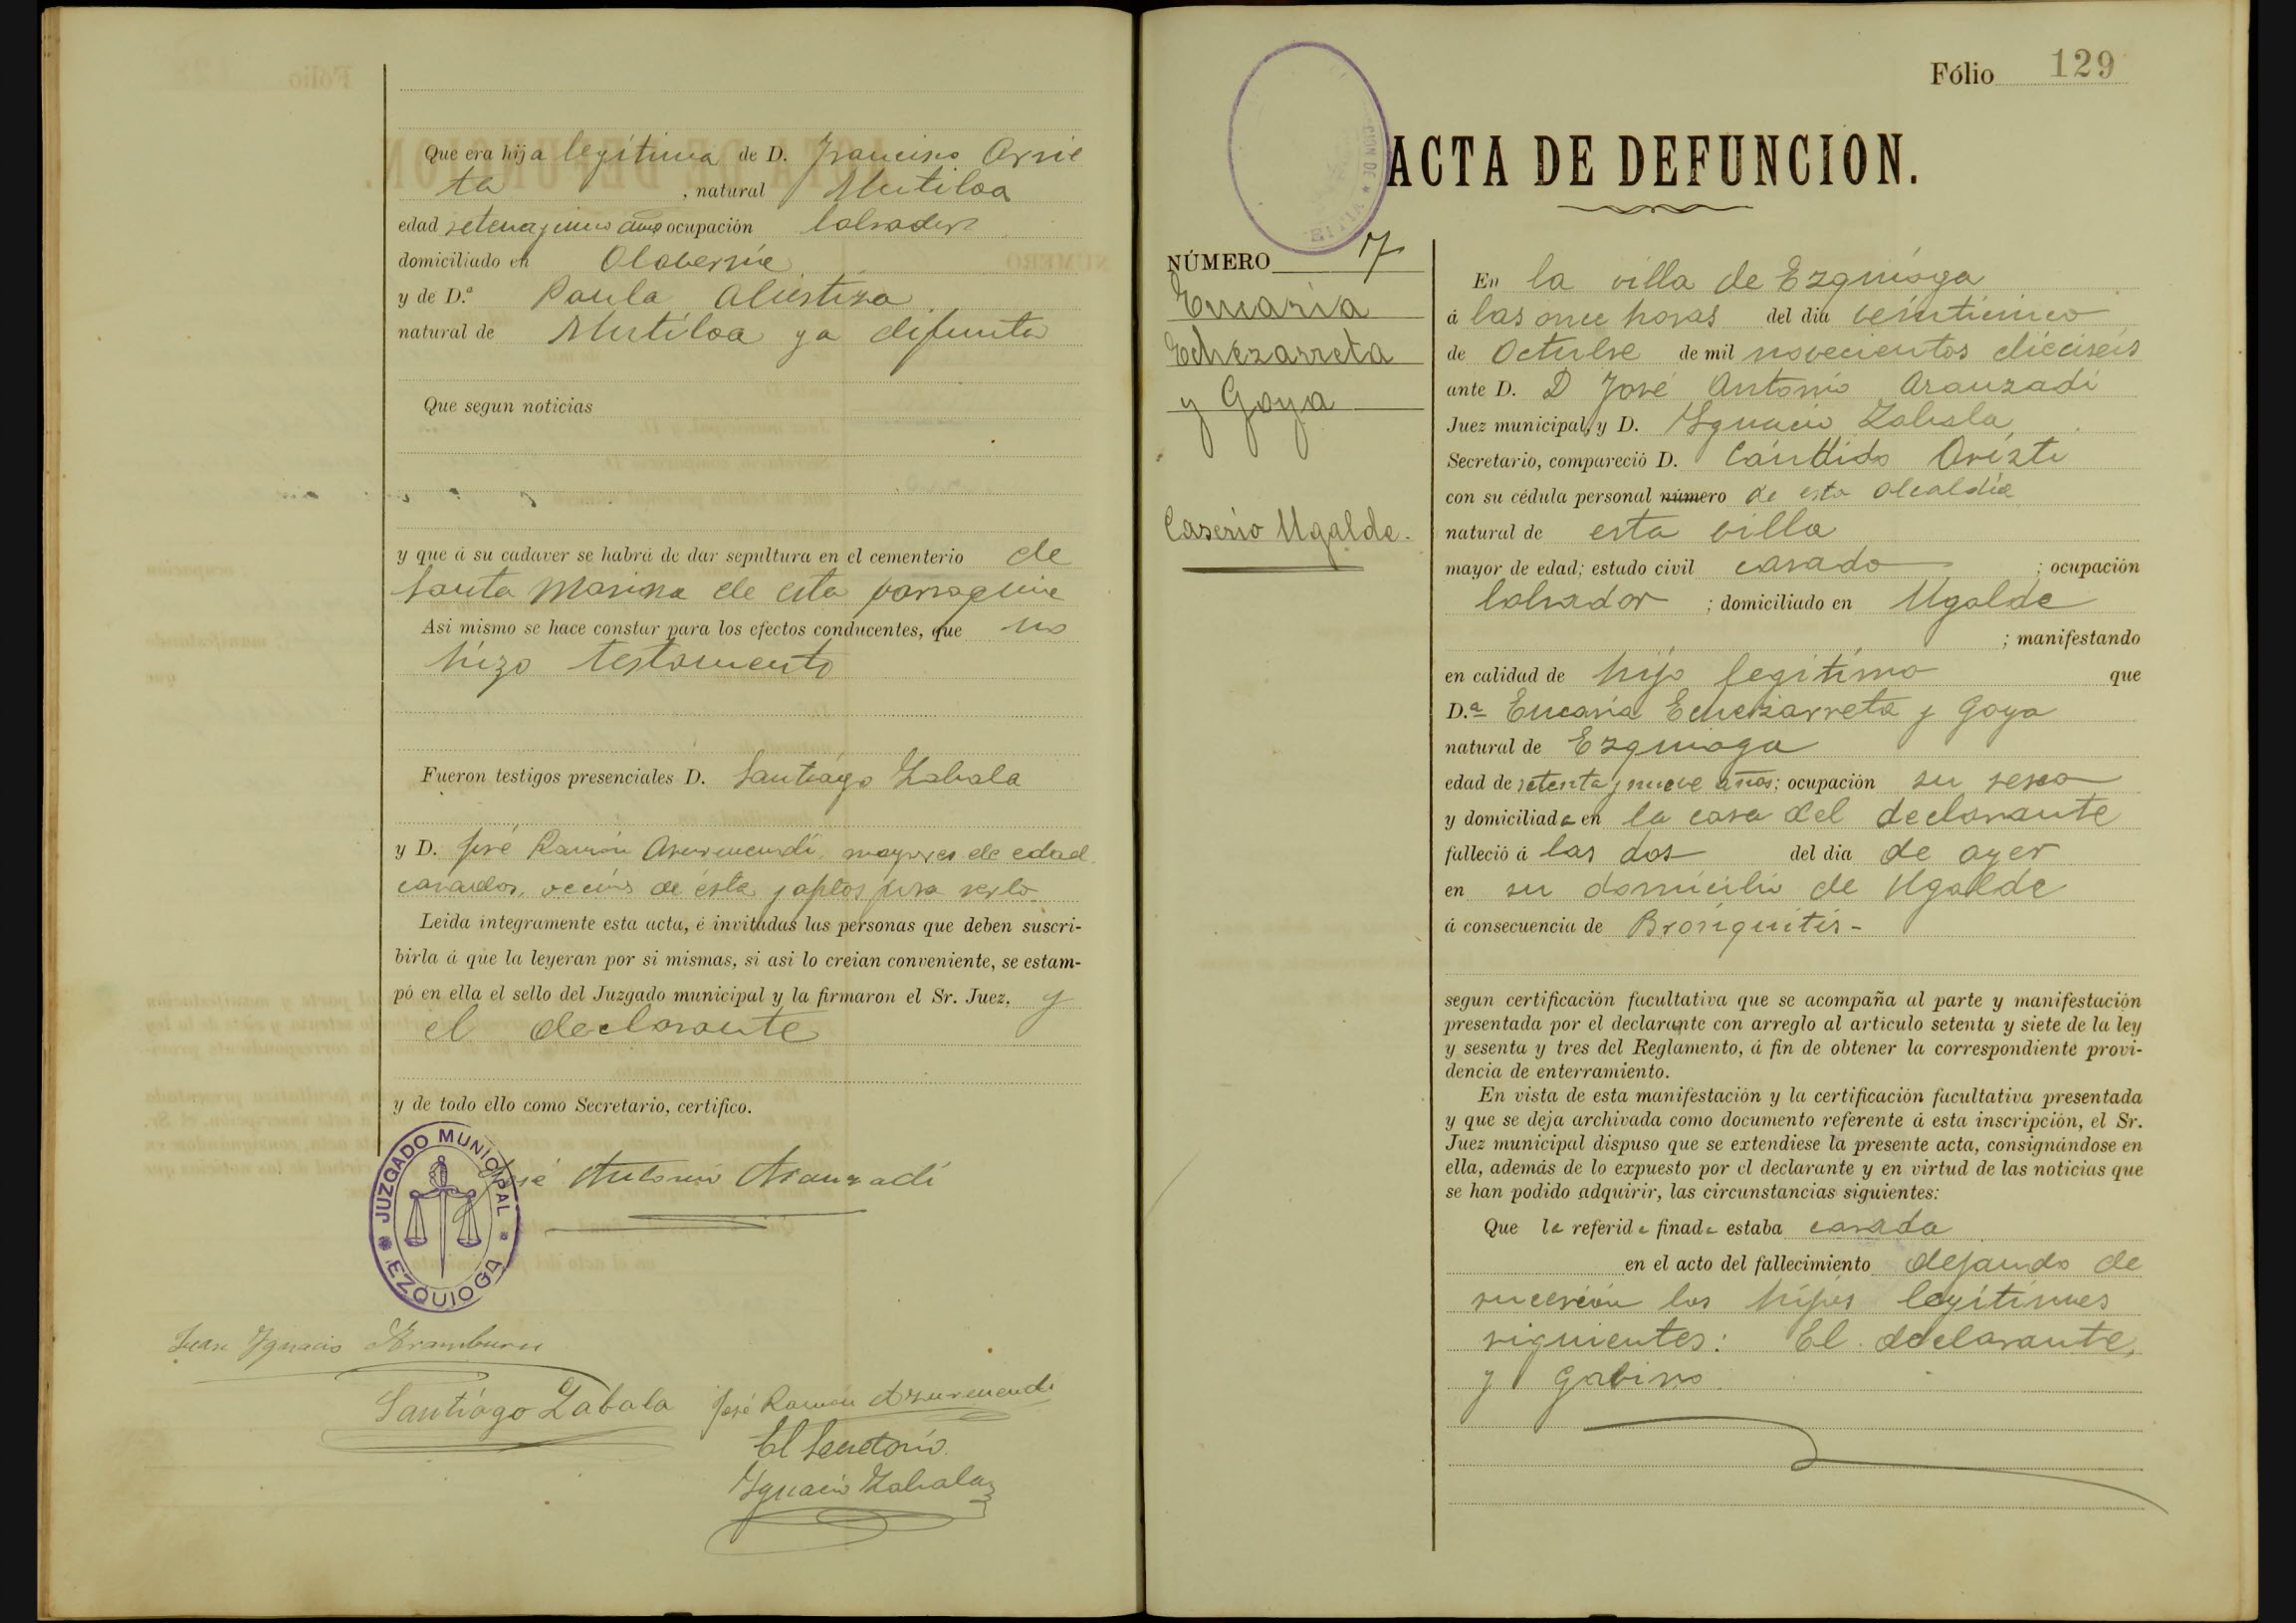 Que era hija legítima de D. Francisco Arrie
ta, natural Mutiloa
edad setenta y cinco años ocupación labrador
domiciliado en Olaberría
y de D.ª Paula Aliestiza
natural de Mutiloa ya difunta
Que segun noticias
y que á su cadaver se habrá de dar sepultura en el cementerio de
Santa Marina de esta parroquia
Asi mismo se hace constar para los efectos conducentes, que no
hizo testamento
Fueron testigos presenciales D. Santiágo Zabala
y D. José Ramón Azurmendi, mayores de edad
casados, vecinos de ésta y aptos para serlo
Leida integramente esta acta, é invitadas las personas que deben suscri-
birla á que la leyeran por si mismas, si asi lo creian conveniente, se estam-
pó en ella el sello del Juzgado municipal y la firmaron el Sr. Juez, y
el declarante
y de todo ello como Secretario, certifico.
JUZGADO MUNICIPAL
EZQUIOGA
José Antonio Aranzadi
Juan Ygnacio Aramburu
Santiágo Zabala José Ramón Azurmendi
El Secretario
Ygnacio Zabala
Fólio 129
ACTA DE DEFUNCION.
NÚMERO 17
Eucaria
Echezarreta
y Goya
Caserio Ugalde.
En la villa de Ezquioga
á las once horas del dia veinticinco
de Octubre de mil novecientos dieciseis
ante D. D José Antonio Aranzadi
Juez municipal, y D. Ygnacio Zabala
Secretario, compareció D. Cándido Arizti
con su cédula personal número de esta Alcaldía
natural de esta villa
mayor de edad; estado civil casado; ocupación
labrador; domiciliado en Ugalde
; manifestando
en calidad de hijo legítimo que
D.ª Eucaria Echezarreta y Goya
natural de Ezquioga
edad de setenta y nueve años; ocupación su sexo
y domiciliada en la casa del declarante
falleció á las dos del dia de ayer
en su domicilio de Ugalde
á consecuencia de Bronquitis -
segun certificación facultativa que se acompaña al parte y manifestación
presentada por el declarante con arreglo al articulo setenta y siete de la ley
y sesenta y tres del Reglamento, á fin de obtener la correspondiente provi-
dencia de enterramiento.
En vista de esta manifestación y la certificación facultativa presentada
y que se deja archivada como documento referente á esta inscripción, el Sr.
Juez municipal dispuso que se extendiese la presente acta, consignándose en
ella, además de lo expuesto por el declarante y en virtud de las noticias que
se han podido adquirir, las circunstancias siguientes:
Que la referida finada estaba casada
en el acto del fallecimiento dejando de
sucesión los hijos legítimos
siguientes: El declarante,
y Gabino